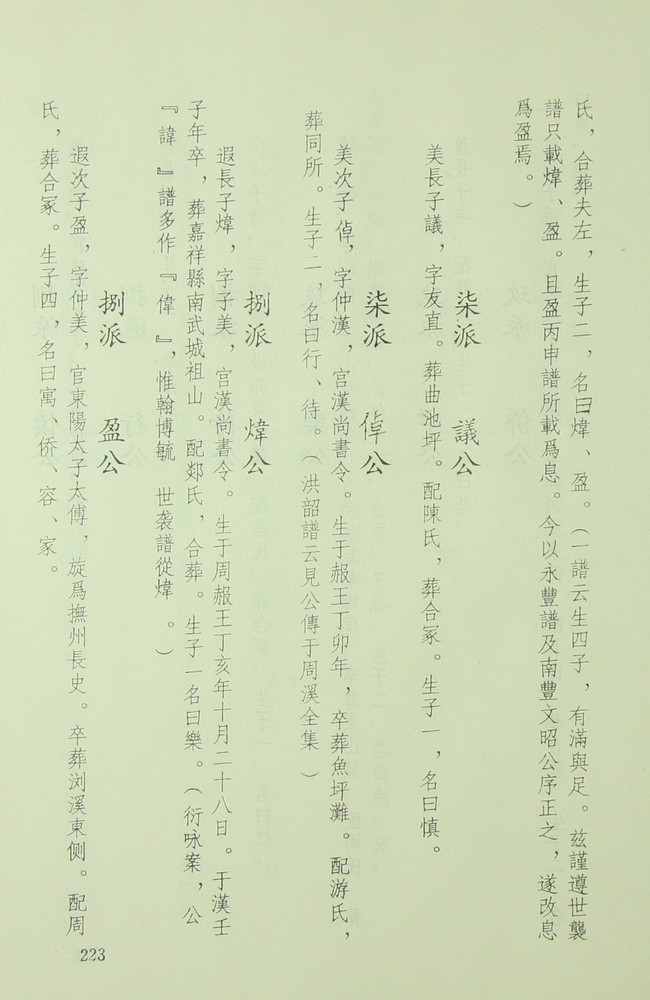 氏，合葬夫左，生子二，名曰煒、盈。（一譜云生四子，有滿與足。兹謹遵世襲
譜只載煒、盈。且盈丙申譜所載爲息。今以永豐譜及南豐文昭公序正之，遂改息
爲盈焉。）
柒派　議公
美長子議，字友直。葬曲池坪。配陳氏，葬合冢。生子一，名曰慎。
柒派　倬公
美次子倬，字仲漢，宫漢尚書令。生于赧王丁卯年，卒葬魚坪灘。配游氏，
葬同所。生子二，名曰行、待。（洪韶譜云見公傳于周溪全集）
捌派　煒公
遐長子煒，字子美，宫漢尚書令。生于周赧王丁亥年十月二十八日。于漢壬
子年卒，葬嘉祥縣南武城祖山。配郯氏，合葬。生子一名曰樂。（衍咏案，公
『諱』譜多作『偉』，惟翰博毓　世袭譜從煒　。）
捌派　盈公
遐次子盈，字仲美，官東陽太子太傅，旋爲撫州長史。卒葬浏溪東侧。配周
氏，葬合冢。生子四，名曰寓、侨、容、家。
223